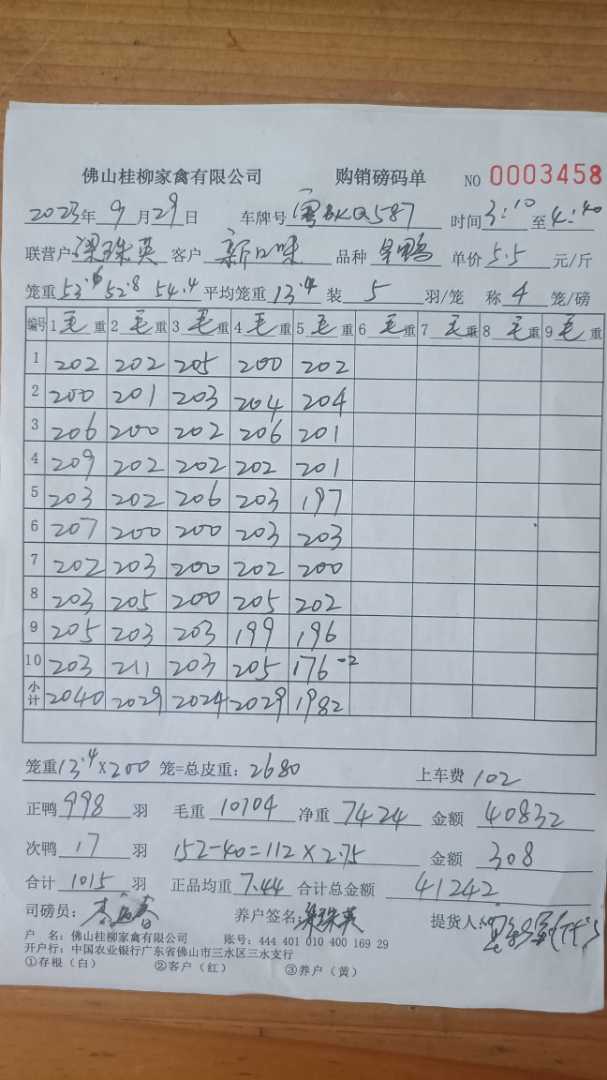 佛山桂柳家禽有限公司 购销磅码单 NO 0003458
2023年9月29日 车牌号 587 时间3:10至4:40
联营户梁珠英 客户 新口味 品种 旱鸭 单价5.5元/斤
笼重53.6 52.8 54.4平均笼重13.4装 5 羽/笼 称 4 笼/磅
编号 1毛重 2毛重 3毛重 4毛重 5毛重 6毛重 7毛重 8毛重 9毛重
1 202 202 205 200 202
2 200 201 203 204 204
3 206 200 202 206 201
4 209 202 202 202 201
5 203 202 206 203 197
6 207 200 200 203 203
7 202 203 200 202 200
8 203 205 200 205 202
9 205 203 203 199 196
10 203 211 203 205 176-2
小计 2040 2029 2024 2029 1982
笼重13.4×200笼=总皮重:2680 上车费 102
正鸭998羽 毛重 10104 净重 7424 金额 40832
次鸭17羽 152-40=112×2.75 金额 308
合计1015羽 正品均重7.44合计总金额 41242
司磅员: 养户签名:梁珠英 提货人:
户 名:佛山桂柳家禽有限公司 账号:444 401 010 400 169 29
开户行:中国农业银行广东省佛山市三水区三水支行
①存根(白) ②客户(红) ③养户(黄)